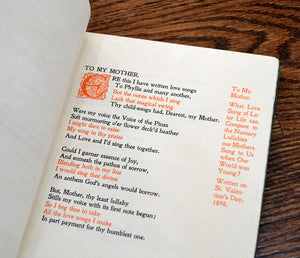 TO MY MOTHER.
ERE this I have written love songs
To Phyllis and many another,
But the runes which I sing
Lack that magical swing
Thy child-songs had, Dearest, my Mother.
Were my voice the Voice of the Poets
Soft murmuring o'er flower deck'd heather
I might dare to raise
My song in thy praise
And Love and I'd sing thee together.
Could I garner essence of Joy,
And enmesh the pathos of sorrow,
Blending both in my line
I would sing thee divine
An anthem God's angels would borrow.
But, Mother, thy least lullaby
Stills my voice with its first note begun;
So I beg thee to take
All the love songs I make
In part payment for thy humblest one.
To My
Mother.
What Love
Song of La-
ter Life can
Compare to
the Nursery
Lullabies
our Mothers
Sang to Us
when Our
World was
Young?
Written on
St. Valen-
tine's Day,
1898.